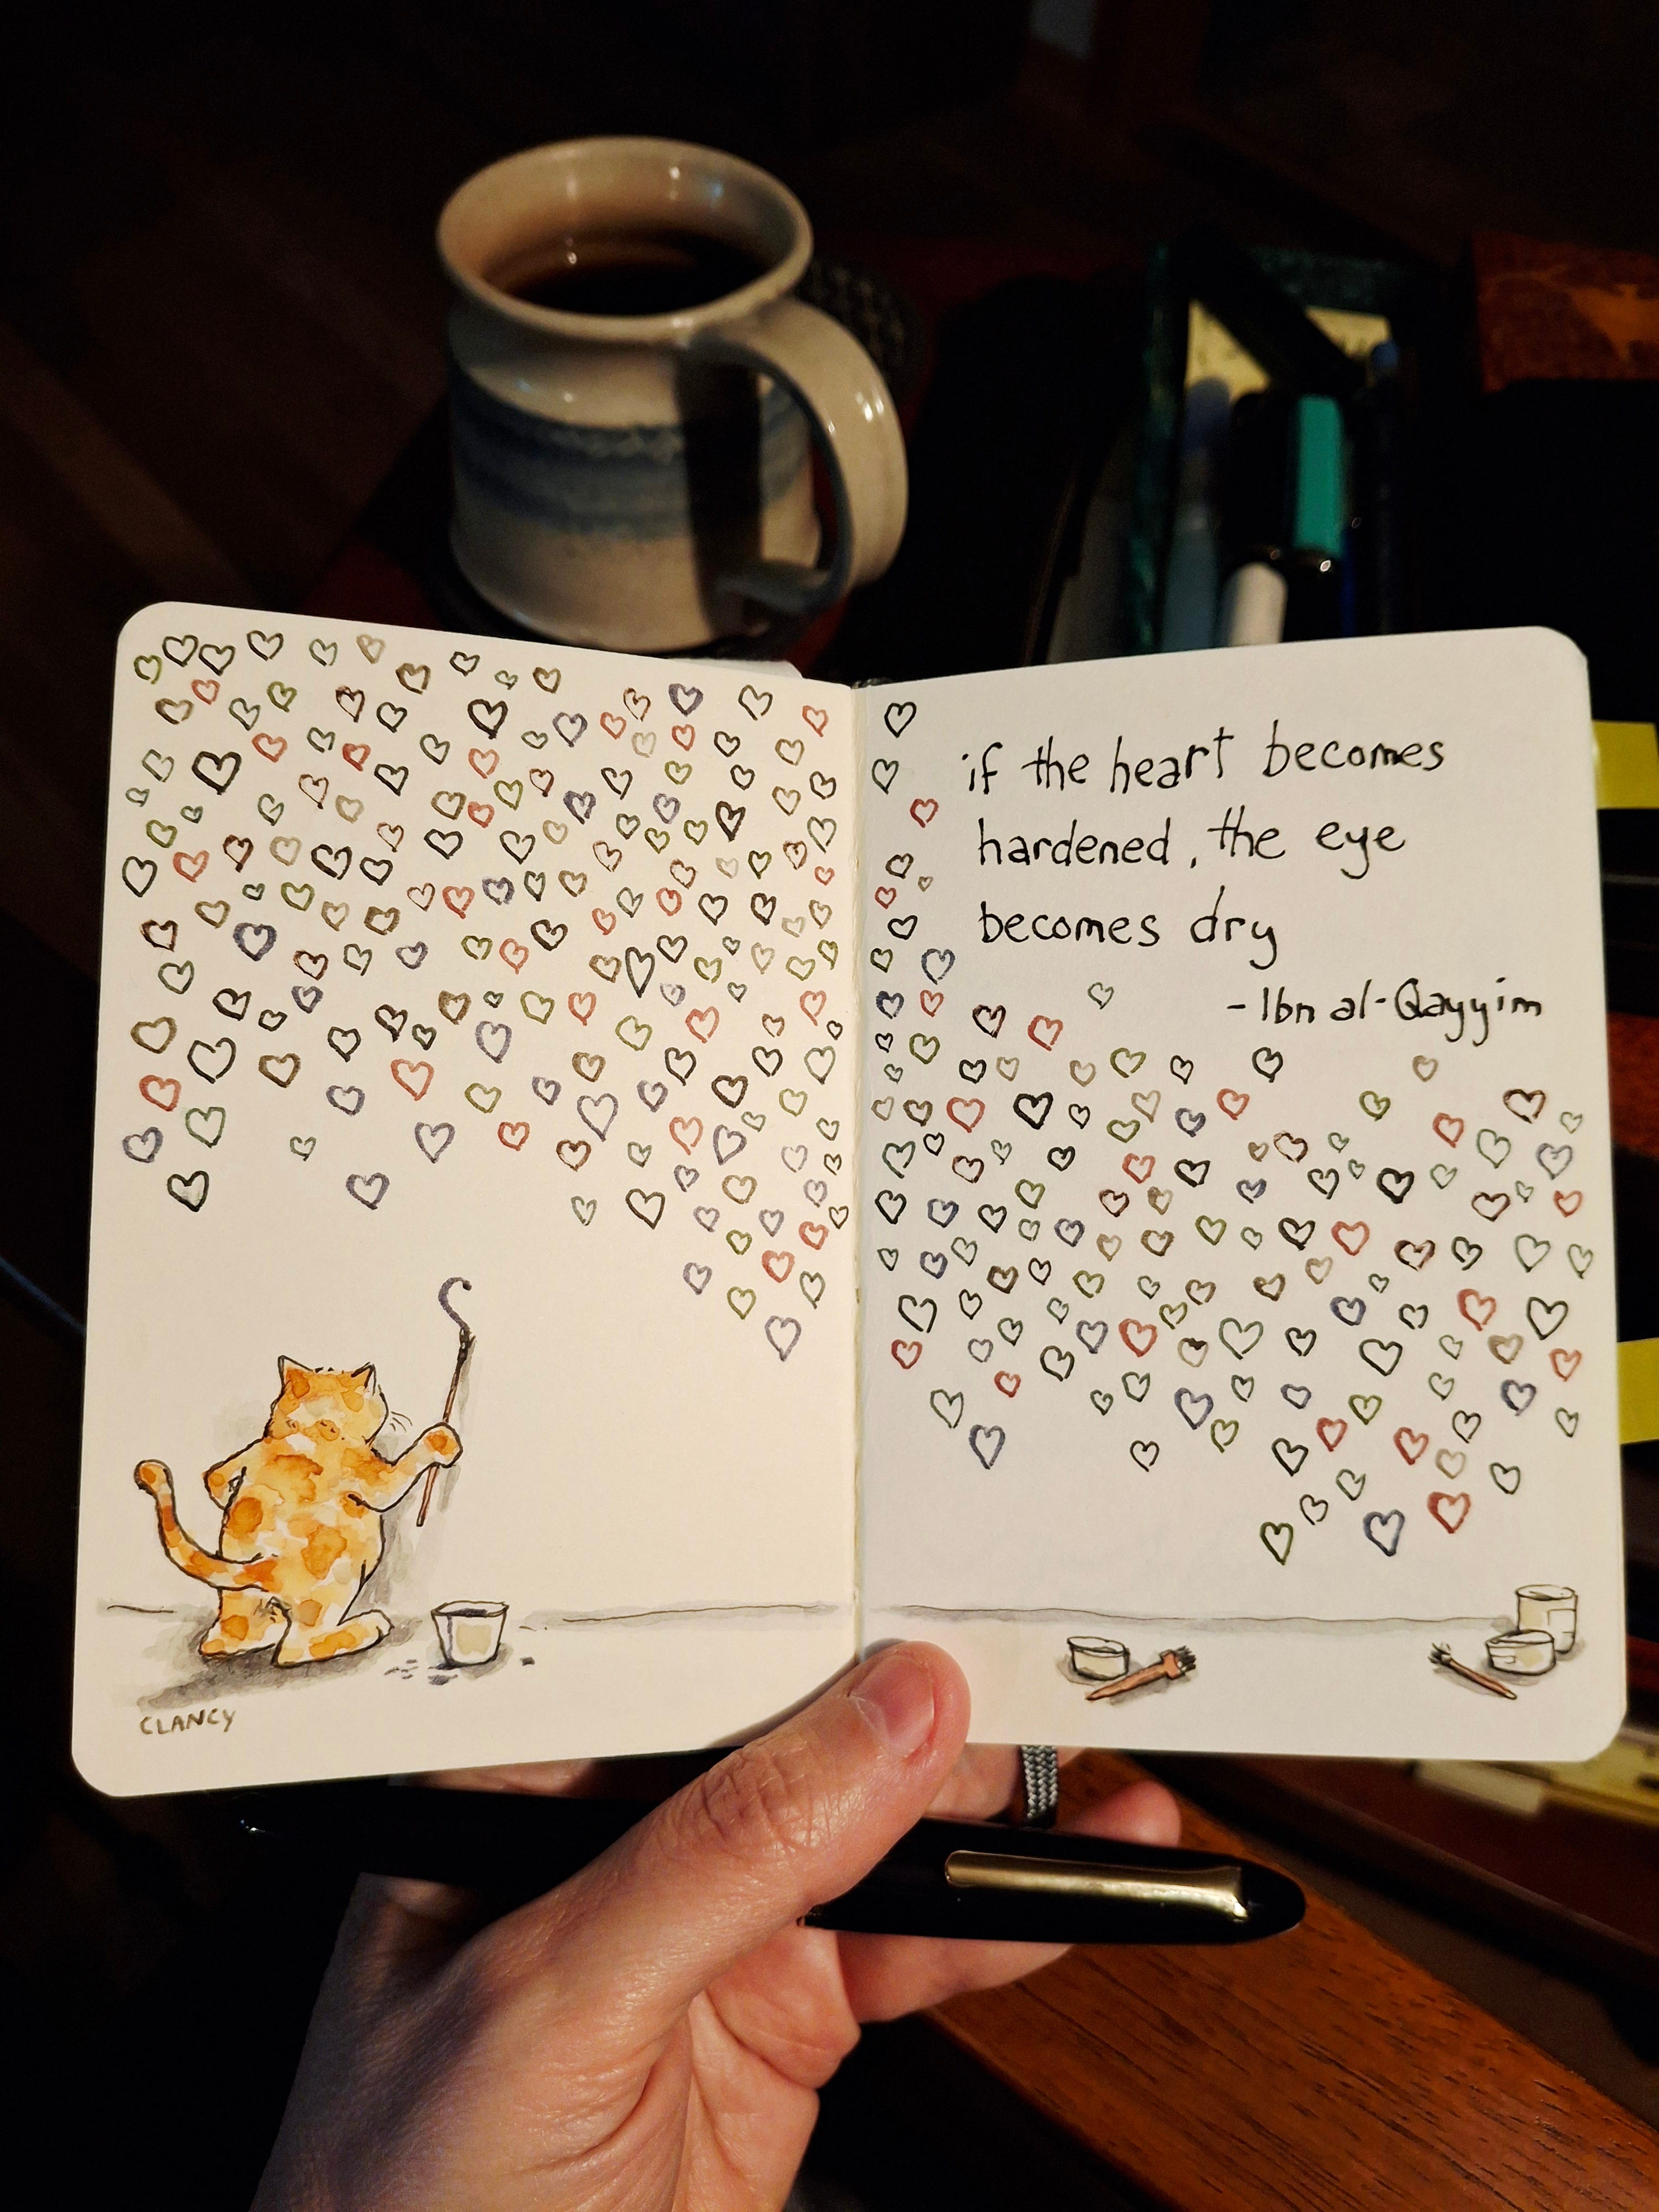 if the heart becomes
hardened, the eye
becomes dry
-Ibn al-Qayyim
CLANCY